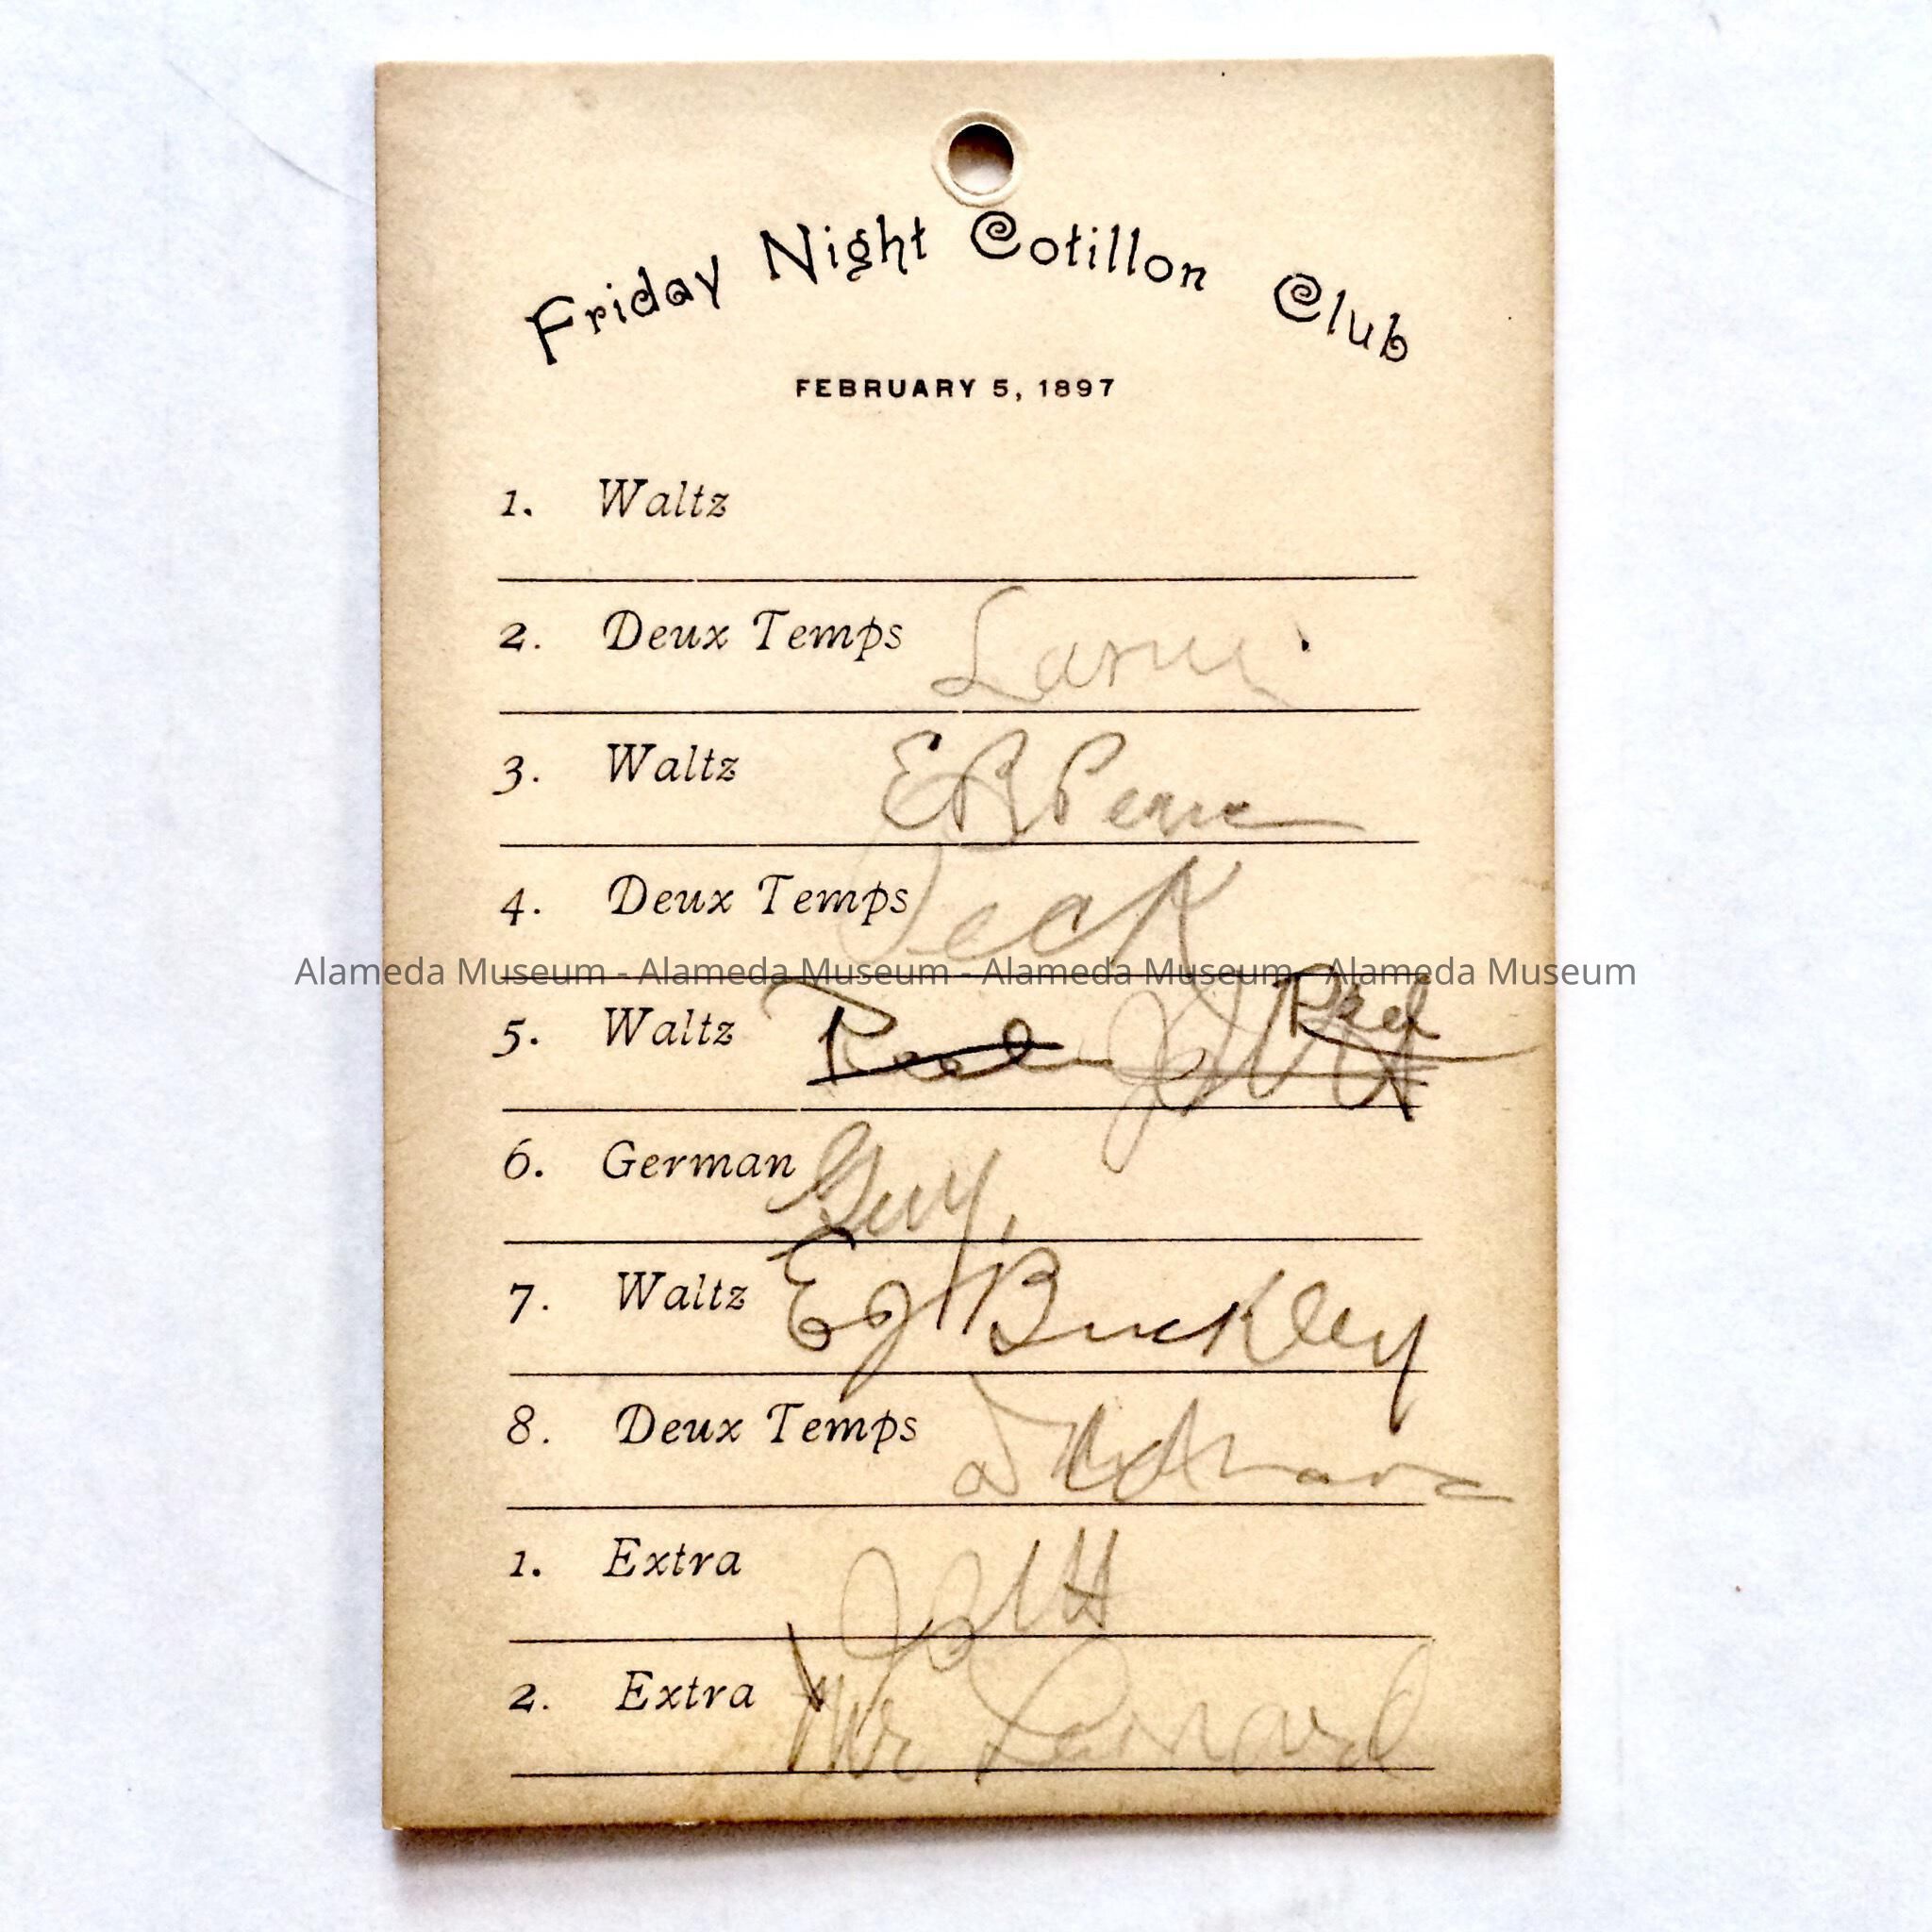 Friday Night Cotillon Club
FEBRUARY 5, 1897
1. Waltz
2. Deux Temps
3. Waltz E R
4. Deux Temps Peck
Alameda Museum - Alameda Museum - Alameda Museum - Alameda Museum
5. Waltz
6. German Guy
7. Waltz E J Buckley
8. Deux Temps
1. Extra
2. Extra Mr Leonard